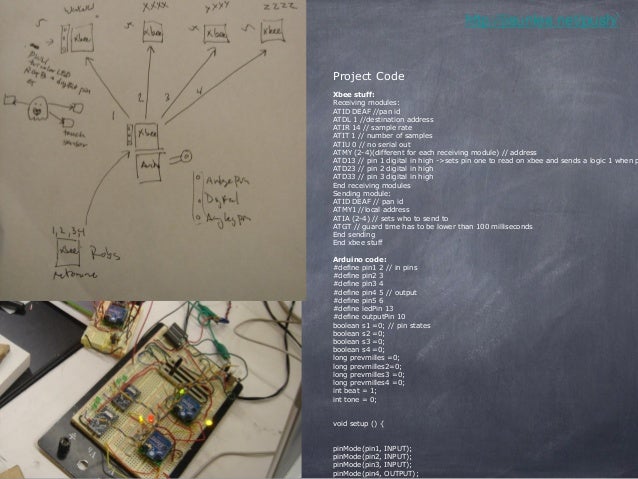 XXXX
YYYY
ZZZZ
Xbee
Xbee
Xbee
Xbee
2
3
4
1
touch
sensor
Xbee
Digital
1,2,3,4
Xbee
Robs
Project Code
Xbee stuff:
Receiving modules:
ATID DEAF //pan id
ATDL 1 //destination address
ATIR 14 // sample rate
ATIT 1 // number of samples
ATIU 0 // no serial out
ATMY (2-4)(different for each receiving module) // address
ATD13 // pin 1 digital in high ->sets pin one to read on xbee and sends a logic 1 when p
ATD23 // pin 2 digital in high
ATD33 // pin 3 digital in high
End receiving modules
Sending module:
ATID DEAF // pan id
ATMY1 //local address
ATIA (2-4) // sets who to send to
ATGT // guard time has to be lower than 100 milliseconds
End sending
End xbee stuff
Arduino code:
#define pin1 2 // in pins
#define pin2 3
#define pin3 4
#define pin4 5 // output
#define pin5 6
#define ledPin 13
#define outputPin 10
boolean s1 =0; // pin states
boolean s2 =0;
boolean s3 =0;
boolean s4 =0;
long prevmilles =0;
long prevmilles2=0;
long prevmilles3 =0;
long prevmilles4 =0;
int beat = 1;
int tone = 0;
void setup () {
pinMode(pin1, INPUT);
pinMode(pin2, INPUT);
pinMode(pin3, INPUT);
pinMode(pin4, OUTPUT);